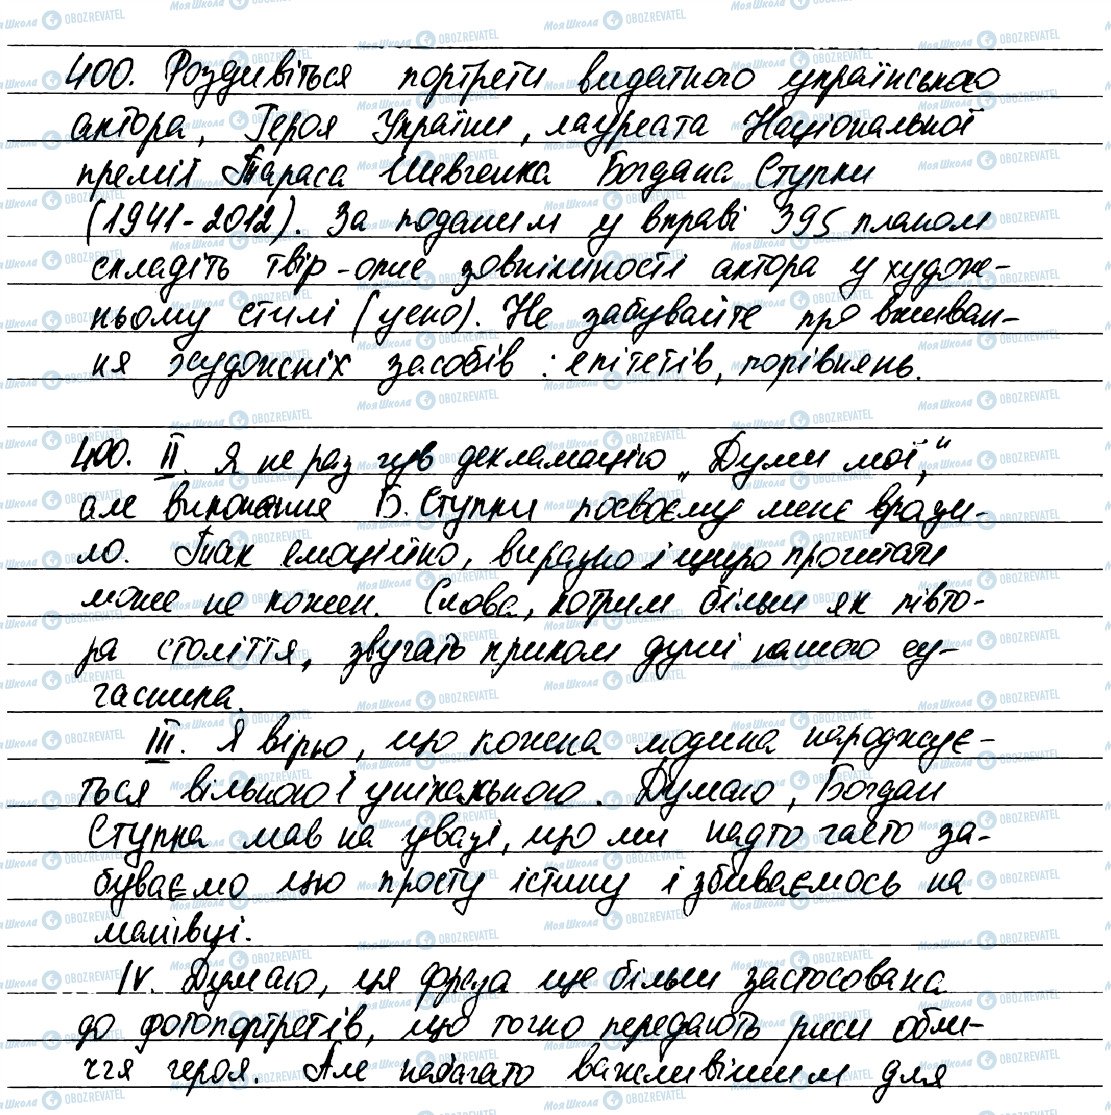 400. Роздивіться портрети видатного українського
актора, Героя України, лауреата Національної
премії Тараса Шевченка Богдана Ступки
(1941-2012). За поданим у вправі 395 планом
складіть твір-опис зовнішності актора у худож-
ньому стилі (усно). Не забувайте про вживан-
ня художніх засобів: епітетів, порівнянь.
400. II. Я не раз чув декламацію „Думи мої,"
але виконання Б. Ступки посвоєму мене врази-
ло. Так емоційно, виразно і щиро прочитати
може не кожен. Слова, котрим більш як півто-
ра століття, звучать криком душі нашого су-
часника.
III. Я вірю, що кожна людина народжує-
ться вільною і унікальною. Думаю, Богдан
Ступка мав на увазі, що ми надто часто за-
буваємо цю просту істину і збиваємось на
манівці.
IV. Думаю, ця фраза ще більш застосована
до фотопортретів, що точно передають риси обли-
ччя героя. Але набагато важливішим для